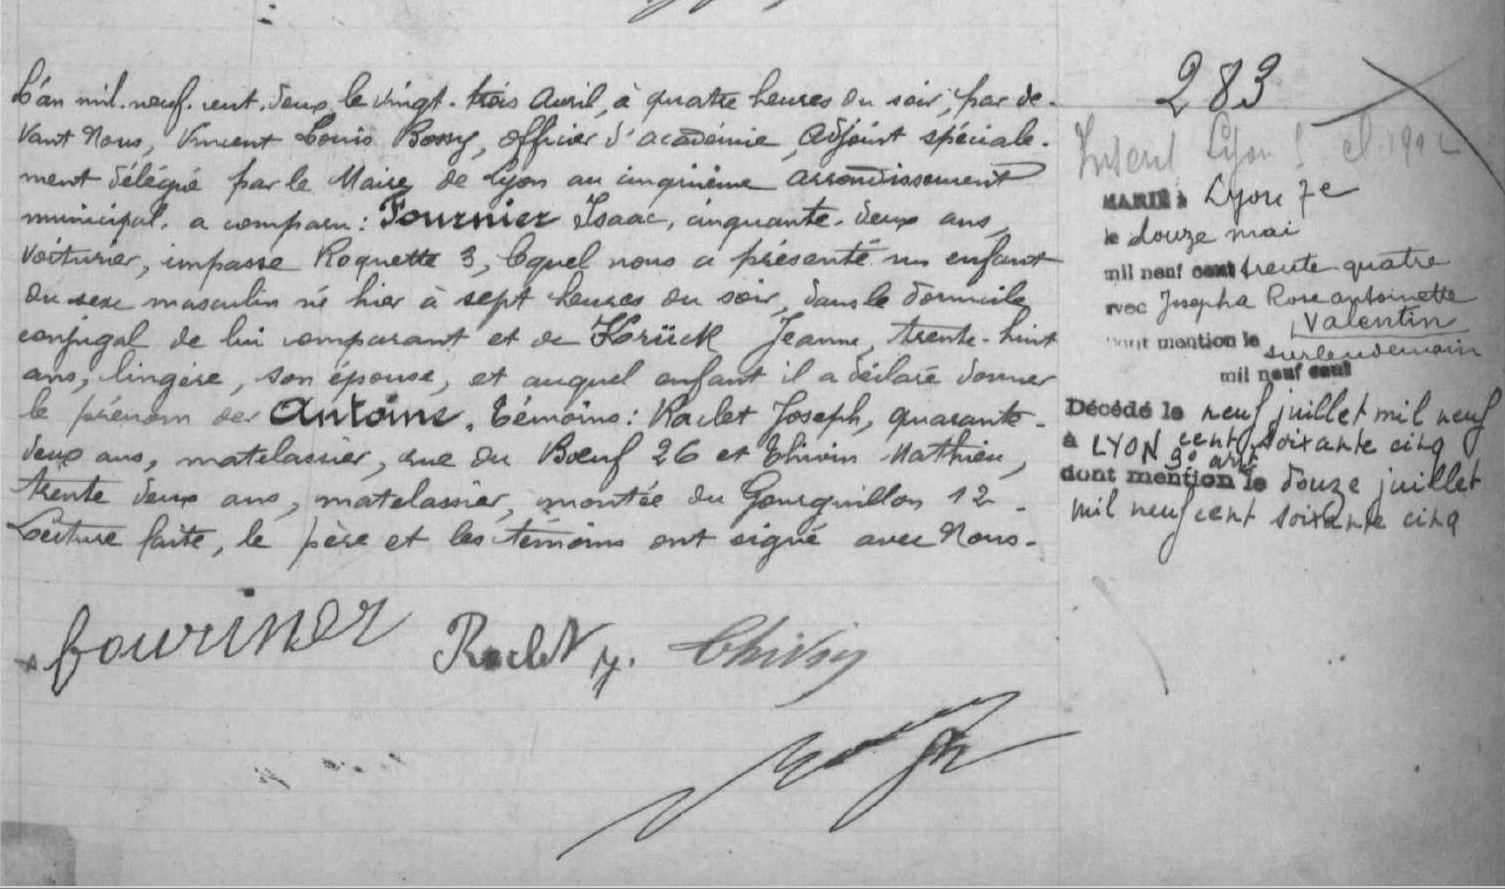 L'an mil-neuf-cent-deux, le vingt-trois Avril, à quatre heures du soir, par de-
vant Nous, Vincent Louis Bossy, officier d'académie, Adjoint spéciale-
ment délégué par le Maire de Lyon au cinquième arrondissement
municipal, a comparu : Fournier Isaac, cinquante-deux ans,
voiturier, impasse Roquette 3, lequel nous a présenté un enfant
du sexe masculin né hier à sept heures du soir, dans le domicile
conjugal de lui comparant et de Korück Jeanne, trente-huit
ans, lingère, son épouse, et auquel enfant il a déclaré donner
le prénom de Antoine. Témoins : Raclet Joseph, quarante-
deux ans, matelassier, rue du Bœuf 26 et Thivin Mathieu,
trente deux ans, matelassier, montée du Gourguillon 12.
Lecture faite, le père et les témoins ont signé avec Nous.
fouriner Raclet J. Thivin
283
Lyon 5
MARIÉ à Lyon 7e
le douze mai
mil neuf cent trente-quatre
avec Josepha Rose antoinette
Valentin
dont mention le surlendemain
mil neuf cent
Décédé le neuf juillet mil neuf
à LYON cent soixante cinq
9e arrt
dont mention le douze juillet
mil neuf cent soixante cinq